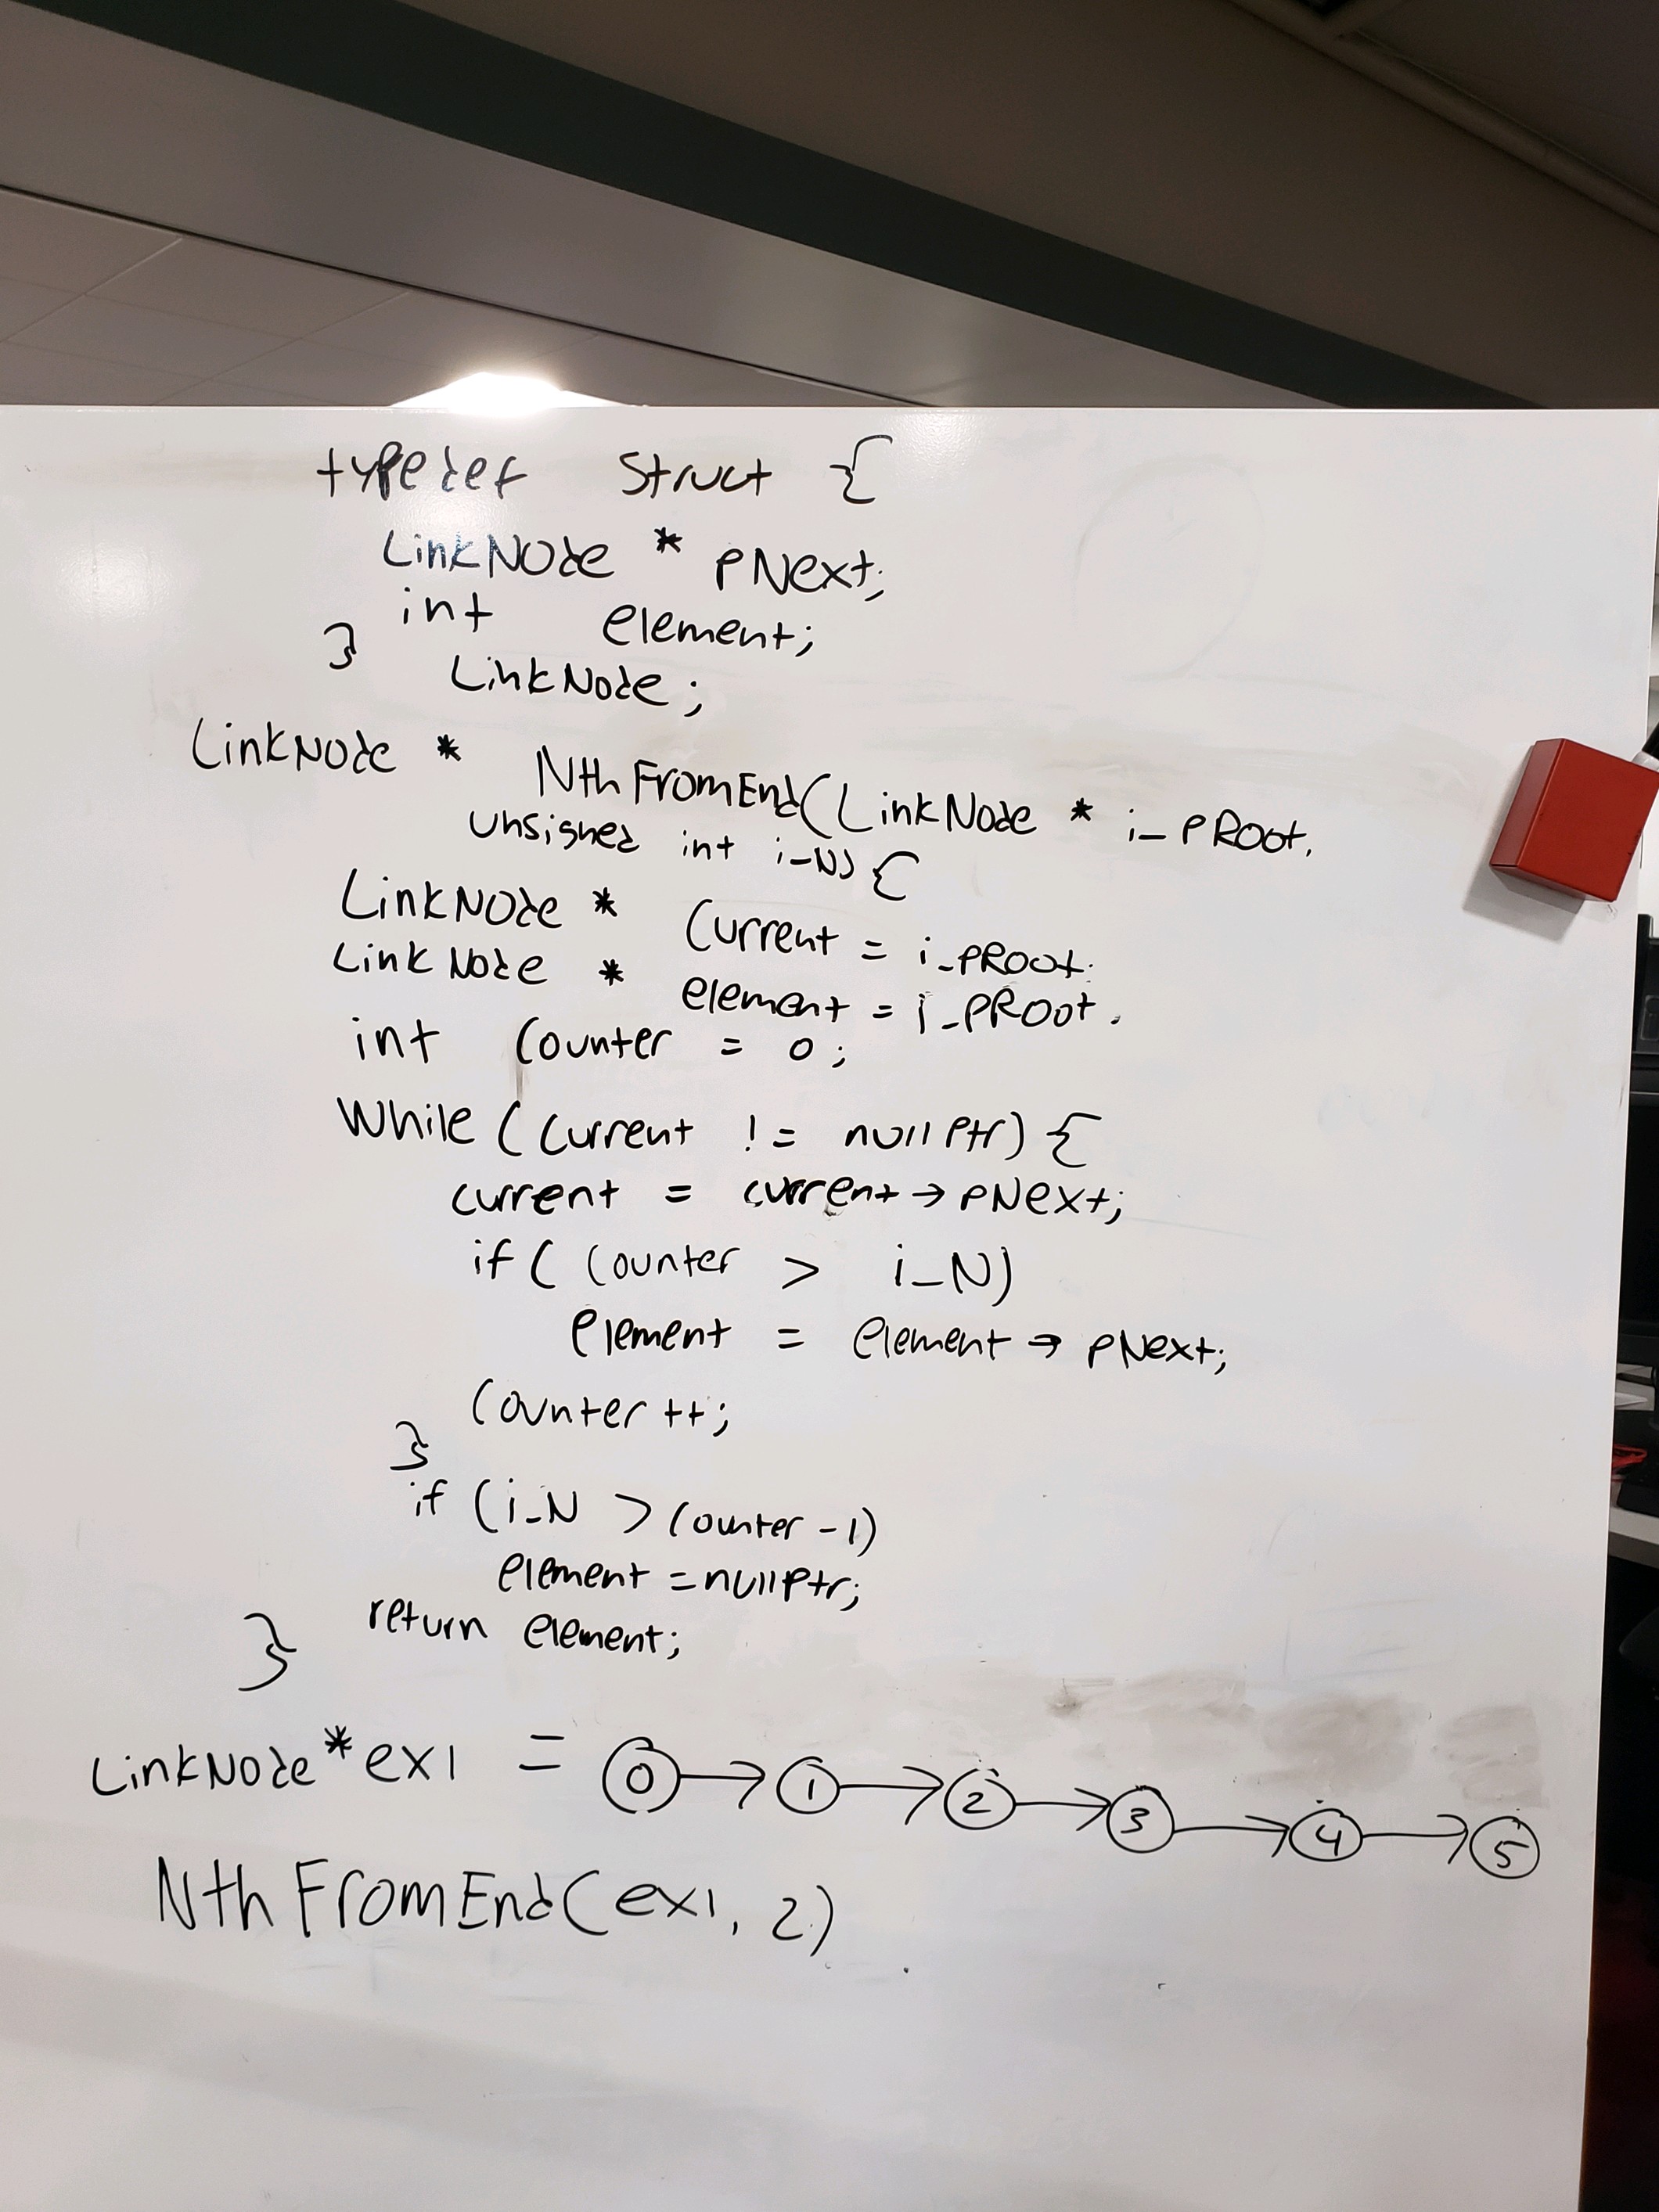 typedef struct {
LinkNode * pNext;
int element;
} LinkNode;
LinkNode * NthFromEnd(LinkNode * i_pRoot,
unsigned int i_N) {
LinkNode * current = i_pRoot;
LinkNode * element = i_pRoot;
int counter = 0;
while (current != nullptr) {
current = current → pNext;
if (counter > i_N)
element = element → pNext;
counter ++;
}
if (i_N > counter - 1)
element = nullptr;
return element;
}
LinkNode * ex1 = 0 → 1 → 2 → 3 → 4 → 5
NthFromEnd(ex1, 2)